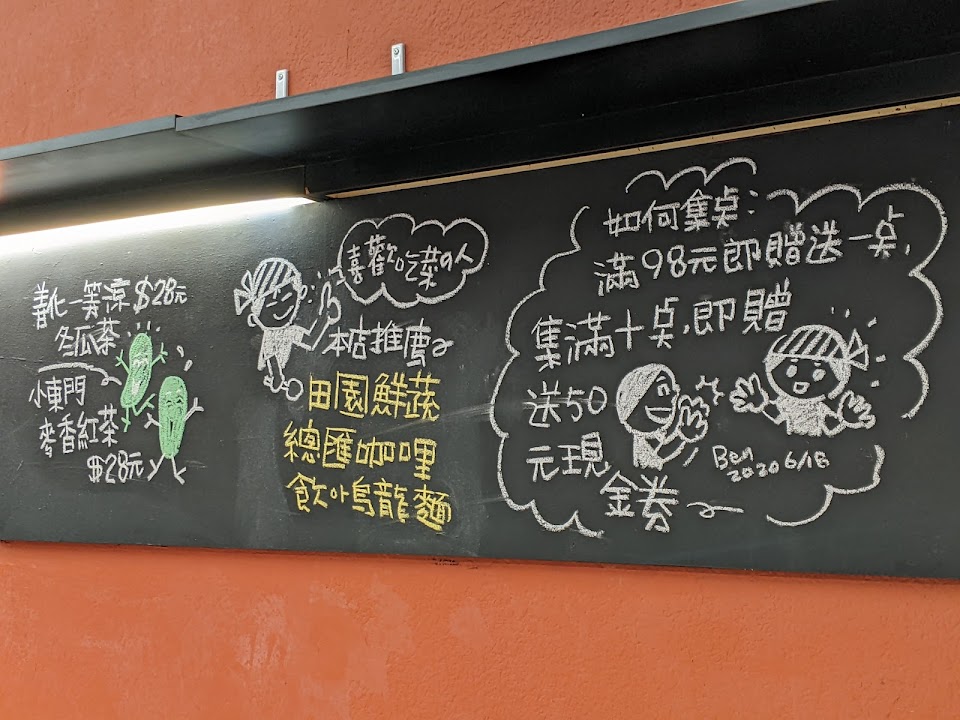 善化一等涼$28元
冬瓜茶
小東門
麥香紅茶
$28元
喜歡吃菜的人
本店推薦
田園鮮蔬
總匯咖哩
飲み烏龍麵
如何集点:
滿98元即贈送一点,
集滿十点,即贈
送50
元現
金券
Ben
2020 6/18